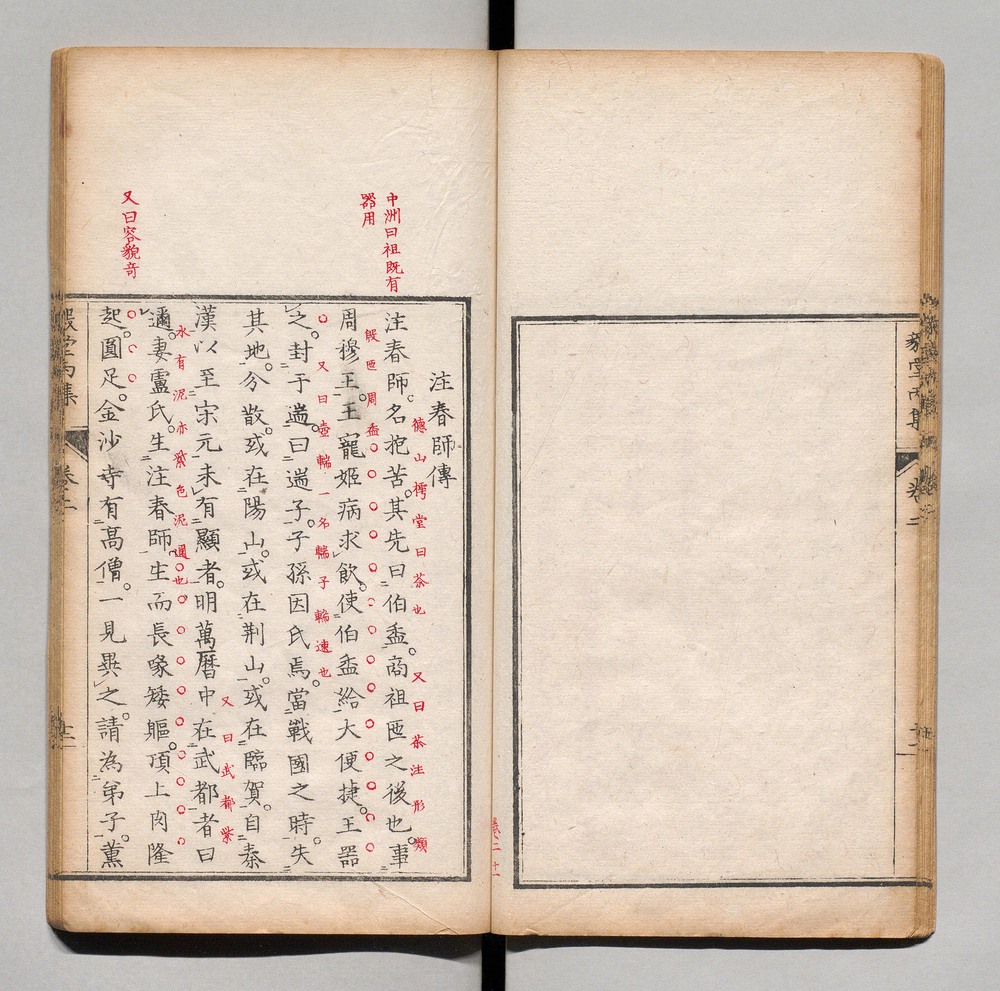 注春師傳
注春師名抱苦其先曰伯盉商祖匜之後也事
周穆王王寵姬病求飲使伯盉給大便捷王器
之封于遄曰遄子子孫因氏焉當戰國之時失
其地分散或在陽山或在荆山或在臨賀自秦
漢以至宋元未有顯者明萬曆中在武都者曰
邇妻盧氏生注春師生而長喙矮軀頂上肉隆
起圓足金沙寺有高僧一見異之請為弟子薰
中洲曰祖既有
器用
又曰容貌奇
德山樗堂曰茶也
又曰茶注形類
殷匜周盉
又曰壺輲一名輲子輲速也
又曰武都紫
水有泥亦紫色泥邇也
卷二 十一